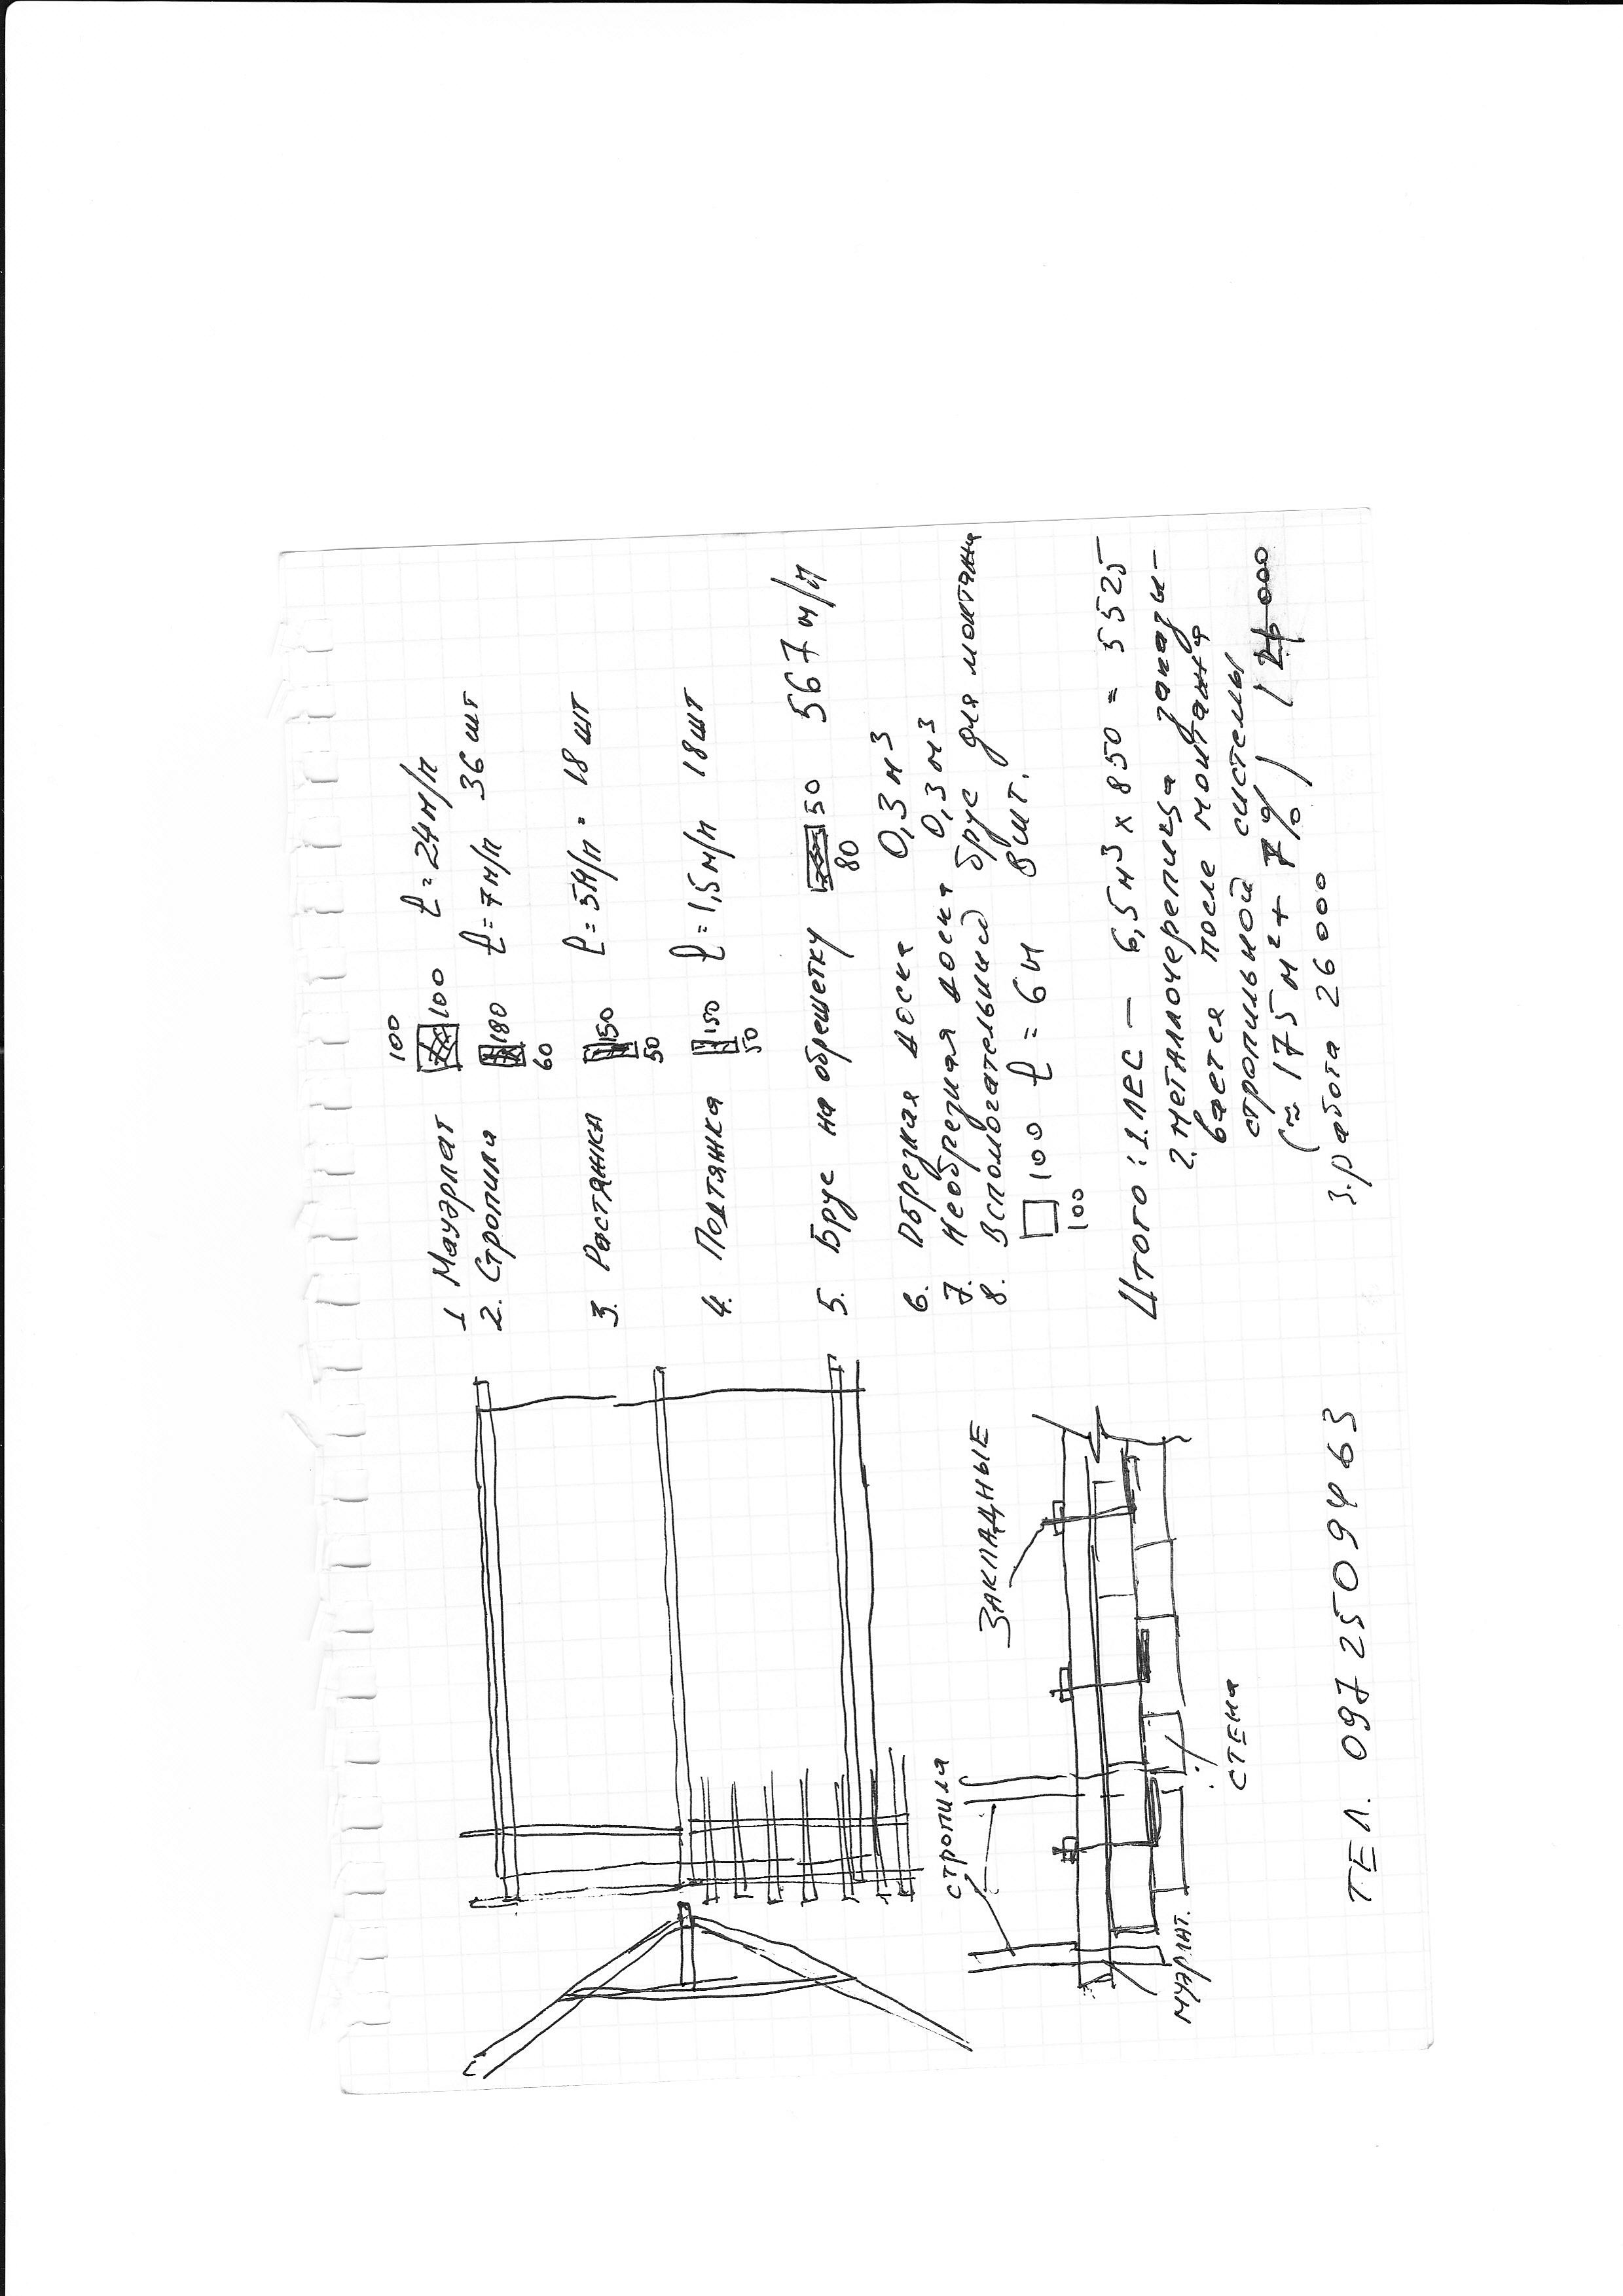 100
1 Мауэрлат 100 ℓ = 24 м/п
2. Стропила 180 ℓ = 7 м/п 36 шт
60
3. Растяжка 150 ℓ = 5 м/п = 18 шт
50
4. Подтяжка 150 ℓ = 1,5 м/п 18 шт
50
5. Брус на обрешетку 50 567 м/п
80
6. Обрезная доска 0,3 м³
7. Необрезная доска 0,3 м³
8. Вспомогательный брус для монтажа
100 ℓ = 6 м 8 шт.
100
Итого: 1. лес — 6,5 м³ х 850 = 5525
2. металлочерепица заказы-
вается после монтажа
стропильной системы
(≈ 175 м² + 7%)
3. работа 26000
ЗАКЛАДНЫЕ
стропила
муэрлат.
стена
ТЕЛ. 0972509463